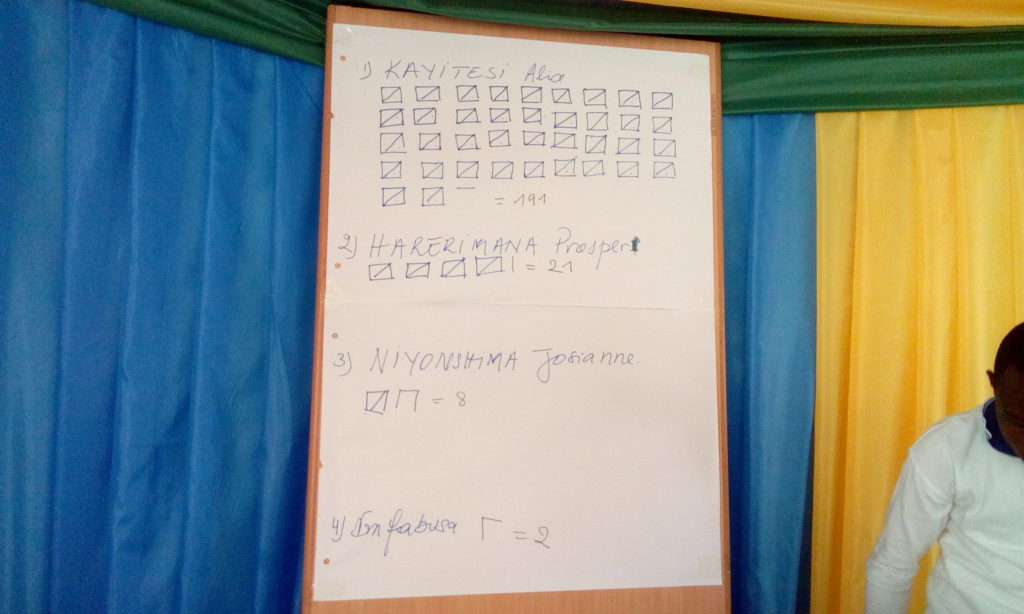 1) KAYiTESi Alia
= 191
2) HARERiMANA Prosper
= 21
3) NiYONSHiMA Josianne.
= 8
4) Imfabusa = 2